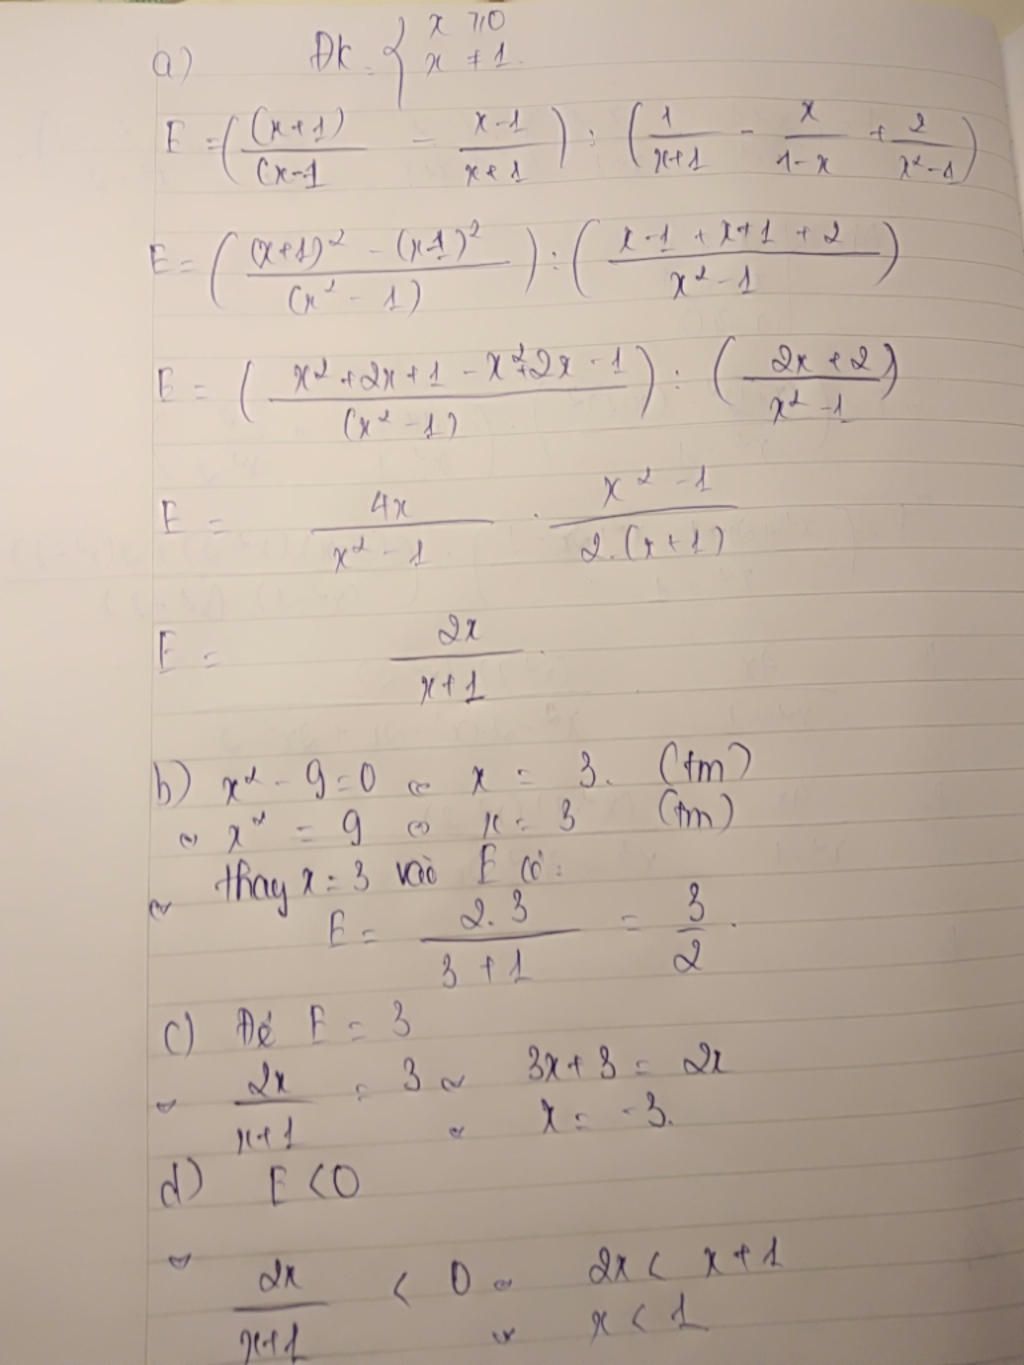 a) ĐK: { x ⩾ 0
x ≠ 1.
E = ( (x+1) / (x-1 - x-1 / x+1 ) : ( 1 / x+1 - x / 1-x + 2 / x² - 1 )
E = ( (x+1)² - (x-1)² / (x² - 1) ) : ( x-1 + x+1 + 2 / x² - 1 )
E = ( x² + 2x + 1 - x² + 2x - 1 / (x² - 1) ) : ( 2x + 2 / x² - 1 )
E = 4x / x² - 1 . x² - 1 / 2.(x+1)
E = 2x / x+1 .
b) x² - 9 = 0 ⇔ x = 3. (tm)
⇔ x² = 9 ⇔ x = 3 (tm)
⇔ thay x = 3 vào E có:
E = 2.3 / 3 + 1 = 3 / 2 .
c) Để E = 3
⇔ 2x / x+1 = 3 ⇔ 3x + 3 = 2x
⇔ x = -3.
d) E < 0
⇔ 2x / x+1 < 0 ⇔ 2x < x + 1
⇔ x < 1